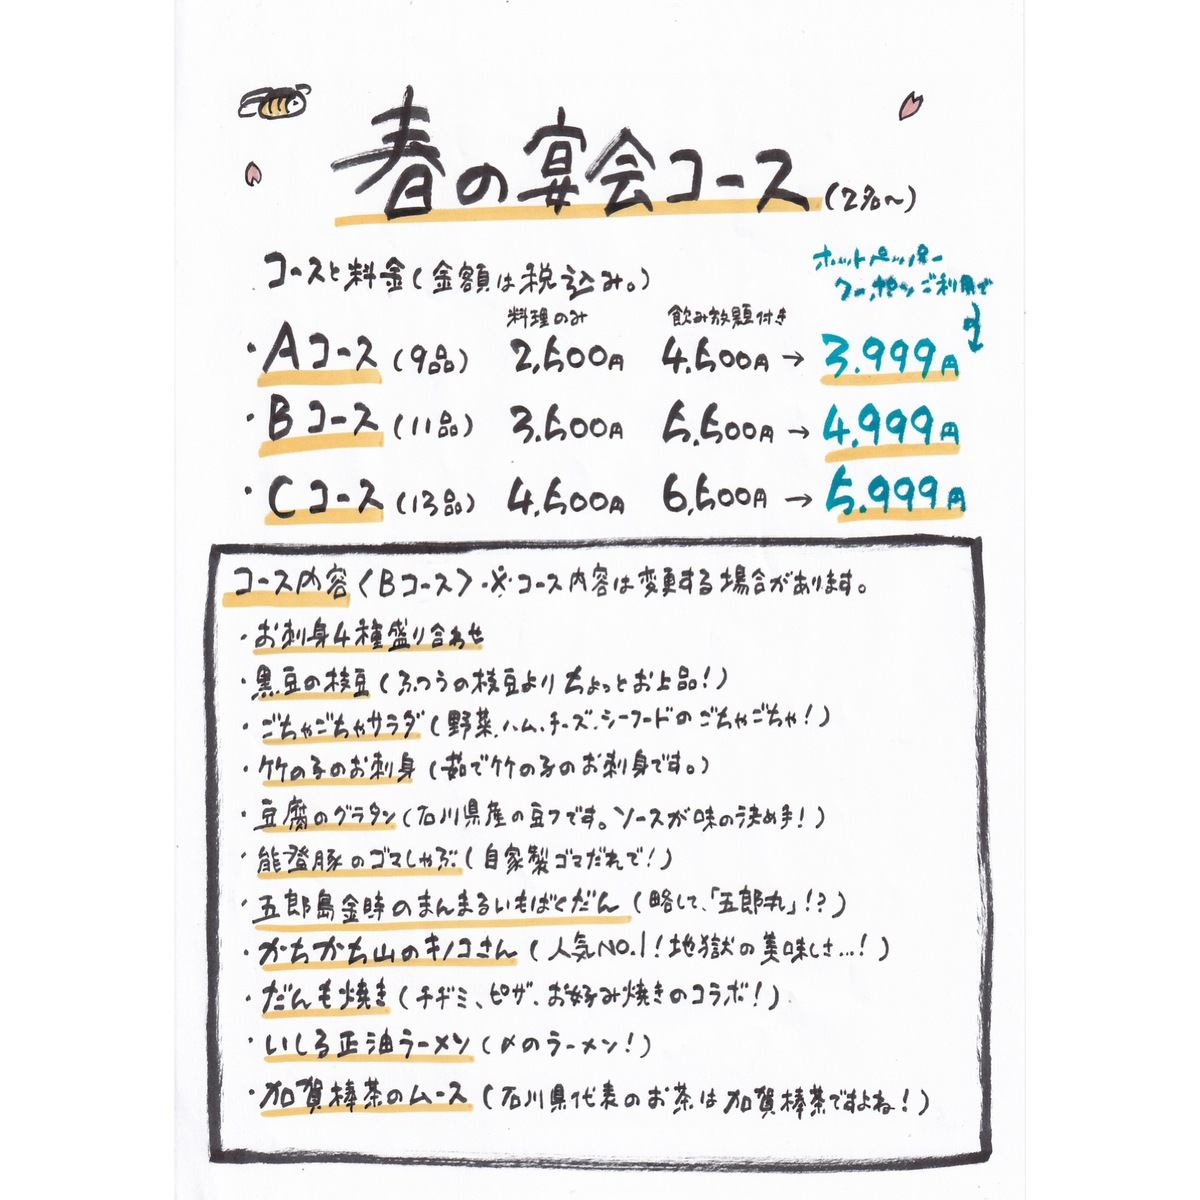 春の宴会コース(2名〜)
コースと料金(金額は税込み。)
ホットペッパー
クーポンご利用で
料理のみ 飲み放題付き
・Aコース(9品) 2,500円 4,500円→3.999円
・Bコース(11品) 3,500円 5,500円→4,999円
・Cコース(13品) 4,500円 6,500円→5.999円
コース内容〈Bコース〉※コース内容は変更する場合があります。
・お刺身4種盛り合わせ
・黒豆の枝豆(ふつうの枝豆よりちょっとお上品!)
・ごちゃごちゃサラダ(野菜、ハム、チーズ、シーフードのごちゃごちゃ!)
・竹の子のお刺身(茹で竹の子のお刺身です。)
・豆腐のグラタン(石川県産の豆フです。ソースが味の決め手!)
・能登豚のゴマしゃぶ(自家製ゴマだれで!)
・五郎島金時のまんまるいもばくだん(略して、「五郎丸」!?)
・かちかち山のキノコさん(人気NO.1!地獄の美味しさ...!)
・だんも焼き(チヂミ、ピザ、お好み焼きのコラボ!)
・いしる正油ラーメン(〆のラーメン!)
・加賀棒茶のムース(石川県代表のお茶は加賀棒茶ですよね!)